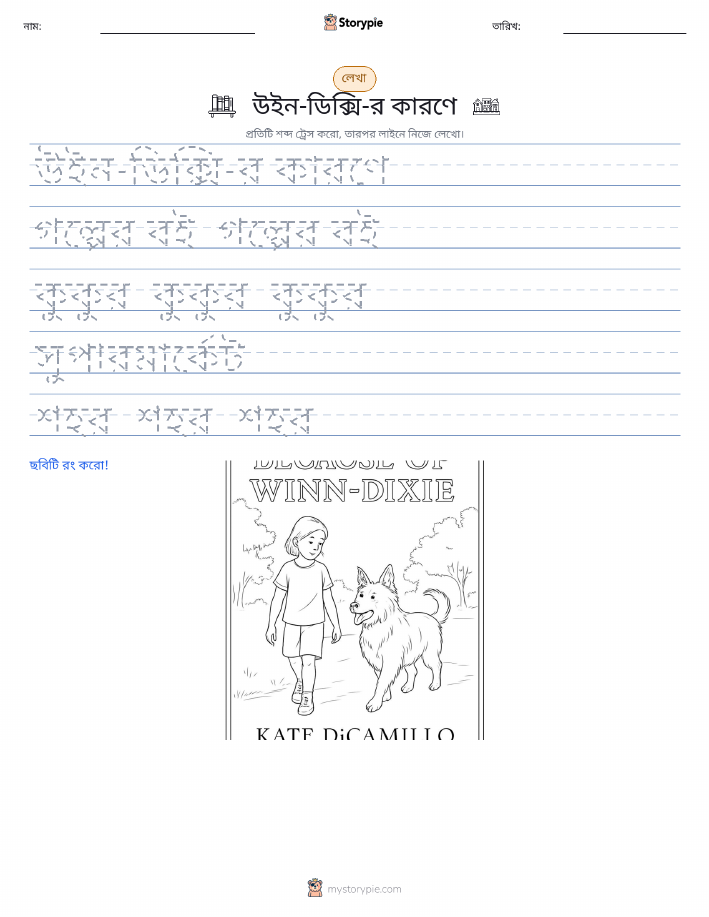 নাম:
Storypie
তারিখ:
লেখা
উইন-ডিক্সি-র কারণে
প্রতিটি শব্দ ট্রেস করো, তারপর লাইনে নিজে লেখো।
উইন-ডিক্সি-র কারণে
গল্পের বই গল্পের বই
কুকুর কুকুর কুকুর
সুপারমার্কেট
শহর শহর শহর
ছবিটি রং করো!
BECAUSE OF
WINN-DIXIE
KATE DiCAMILLO
mystorypie.com